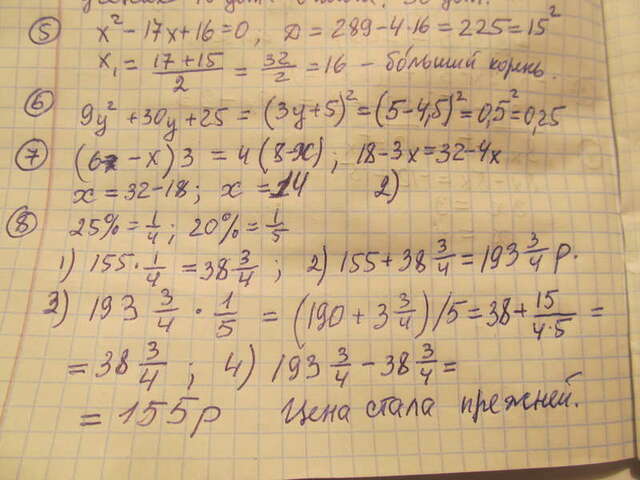 ⑤ x² - 17x + 16 = 0, D = 289 - 4·16 = 225 = 15²
x₁ = (17 + 15)/2 = 32/2 = 16 - больший корень.
⑥ 9y² + 30y + 25 = (3y + 5)² = (5 - 4,5)² = 0,5² = 0,25
⑦ (6 - x) 3 = 4 (8 - x); 18 - 3x = 32 - 4x
x = 32 - 18; x = 14 2)
⑧ 25% = 1/4; 20% = 1/5
1) 155 · 1/4 = 38 3/4; 2) 155 + 38 3/4 = 193 3/4 р.
3) 193 3/4 · 1/5 = (190 + 3 3/4) / 5 = 38 + 15/(4·5) =
= 38 3/4; 4) 193 3/4 - 38 3/4 =
= 155 р Цена стала прежней.